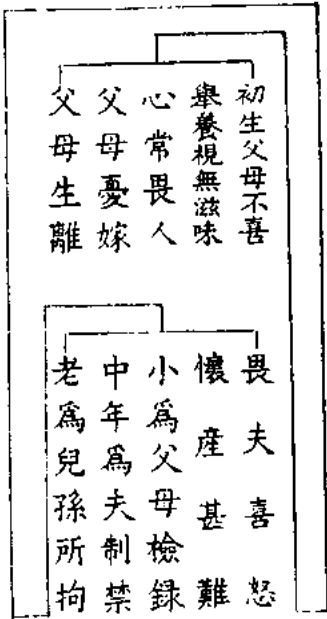 初生父母不喜
舉養視無滋味
心常畏人
父母憂嫁
父母生離
畏夫喜怒
懷産甚難
小爲父母檢録
中年爲夫制禁
老爲兒孫所拘